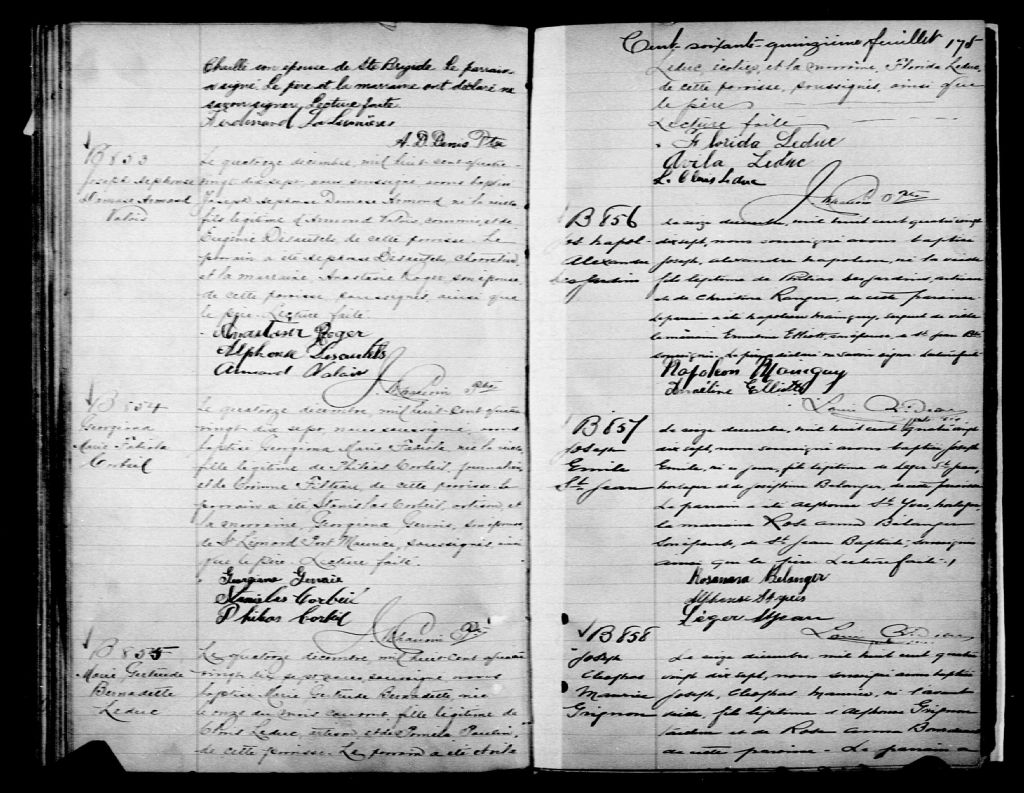 Charles son épouse de Ste Brigide. Le parrain
a signé Le père et la marraine ont déclaré ne
savoir signer, Lecture faite
Ferdinand
A. D. Denis Ptre
B 853
Joseph Alphonse
Damase Armand
Valois
Le quatorze décembre, mil huit cent quatre-
vingt dix sept, nous soussigné, avons baptisé
Joseph Alphonse Damase Armond né la veille
fils légitime d'Armond Valois, commis, et de
Eugénie Désautels, de cette paroisse. Le
parrain a été Alphonse Désautels,
et la marraine Anastasie Roger son épouse,
de cette paroisse soussignés, ainsi que
le père. Lecture faite.
Anastasie Roger
Alphonse Desautels
Armand Valois
J. Ptre
B 854
Georgiana
Marie Fabiola
Corbeil
Le quatorze décembre, mil huit cent quatre
vingt dix sept, nous soussigné, avons
baptisé Georgiana Marie Fabiola, née la veille
fille légitime de Philias Corbeil, journalier
et de Corinne Filteau, de cette paroisse. Le
parrain a été Stanislas Corbeil, artisan, et
la marraine, Georgiana Gervais, son épouse,
de St Léonard Port Maurice, soussignés, ainsi
que le père. Lecture faite.
Georgiana Gervais
Stanislas Corbeil
Philias Corbeil
J. Ptre
B 855
Marie Gertrude
Bernadette
Leduc
Le quatorze décembre, mil huit cent quatre
vingt dix sept, nous, soussigné avons
baptisé Marie Gertrude Bernadette, née
le onze du mois courant, fille légitime de
Clovis Leduc, artisan, et de Poulin,
de cette paroisse. Le parrain a été Avila
Cent-soixante-quinzième feuillet 175
Leduc, écolier, et la marraine, Florida Leduc,
de cette paroisse, soussignés, ainsi que
le père
Lecture faite
Florida Leduc
Avila Leduc
L. Clovis Leduc
J. Ptre
B 856
Jos Napol-
Alexandre
Desjardins
Le seize décembre, mil huit cent quatre vingt
dix sept, nous soussigné avons baptisé
Joseph, Alexandre Napoléon, né la veille
fils légitime de Philias Desjardins, artisan
et de Christine Ranger, de cette paroisse
le parrain a été Napoléon Mainguy,
la marraine Emmeline Elliott, son épouse, de St Jean Bte
soussignés, le père a déclaré ne savoir signer. Lecture faite
Napoléon Mainguy
Emméline Elliott
Louis
B 857
Joseph
Emile
St Jean
Le seize décembre, mil huit cent quatre vingt
dix sept, nous soussigné avons baptisé Joseph
Emile, né ce jour, fils légitime de Léger St Jean,
horloger et de Joséphine Bélanger, de cette paroisse
Le parrain a été Alphonse St Yves, horloger,
la marraine Rose Anna Bélanger
son épouse, de St Jean Baptiste, soussignés
ainsi que le père. Lecture faite.
Rosanna Belanger
Alphonse St Yves
Léger St Jean
Louis
B 858
Joseph
Cléophas
Maurice
Grignon
Le seize décembre, mil huit cent quatre
vingt dix sept, nous soussigné avons baptisé
Joseph, Cléophas Maurice, né l'avant
veille, fils légitime d'Alphonse Grignon
et de Rose Anna
de cette paroisse - Le parrain a